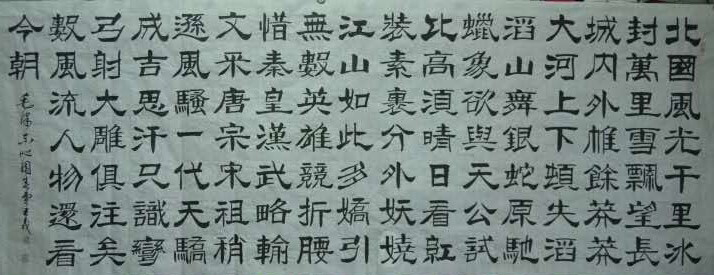 北國風光千里冰
封萬里雪飄望長
城内外惟餘莽莽
大河上下頓失滔
滔山舞銀蛇原馳
蠟象欲與天公試
比高須晴日看紅
裝素裹分外妖嬈
江山如此多嬌引
無數英雄競折腰
惜秦皇漢武略輸
文采唐宗宋祖稍
遜風騷一代天驕
成吉思汗只識彎
弓射大雕俱往矣
數風流人物還看
今朝
毛澤東沁園春雪